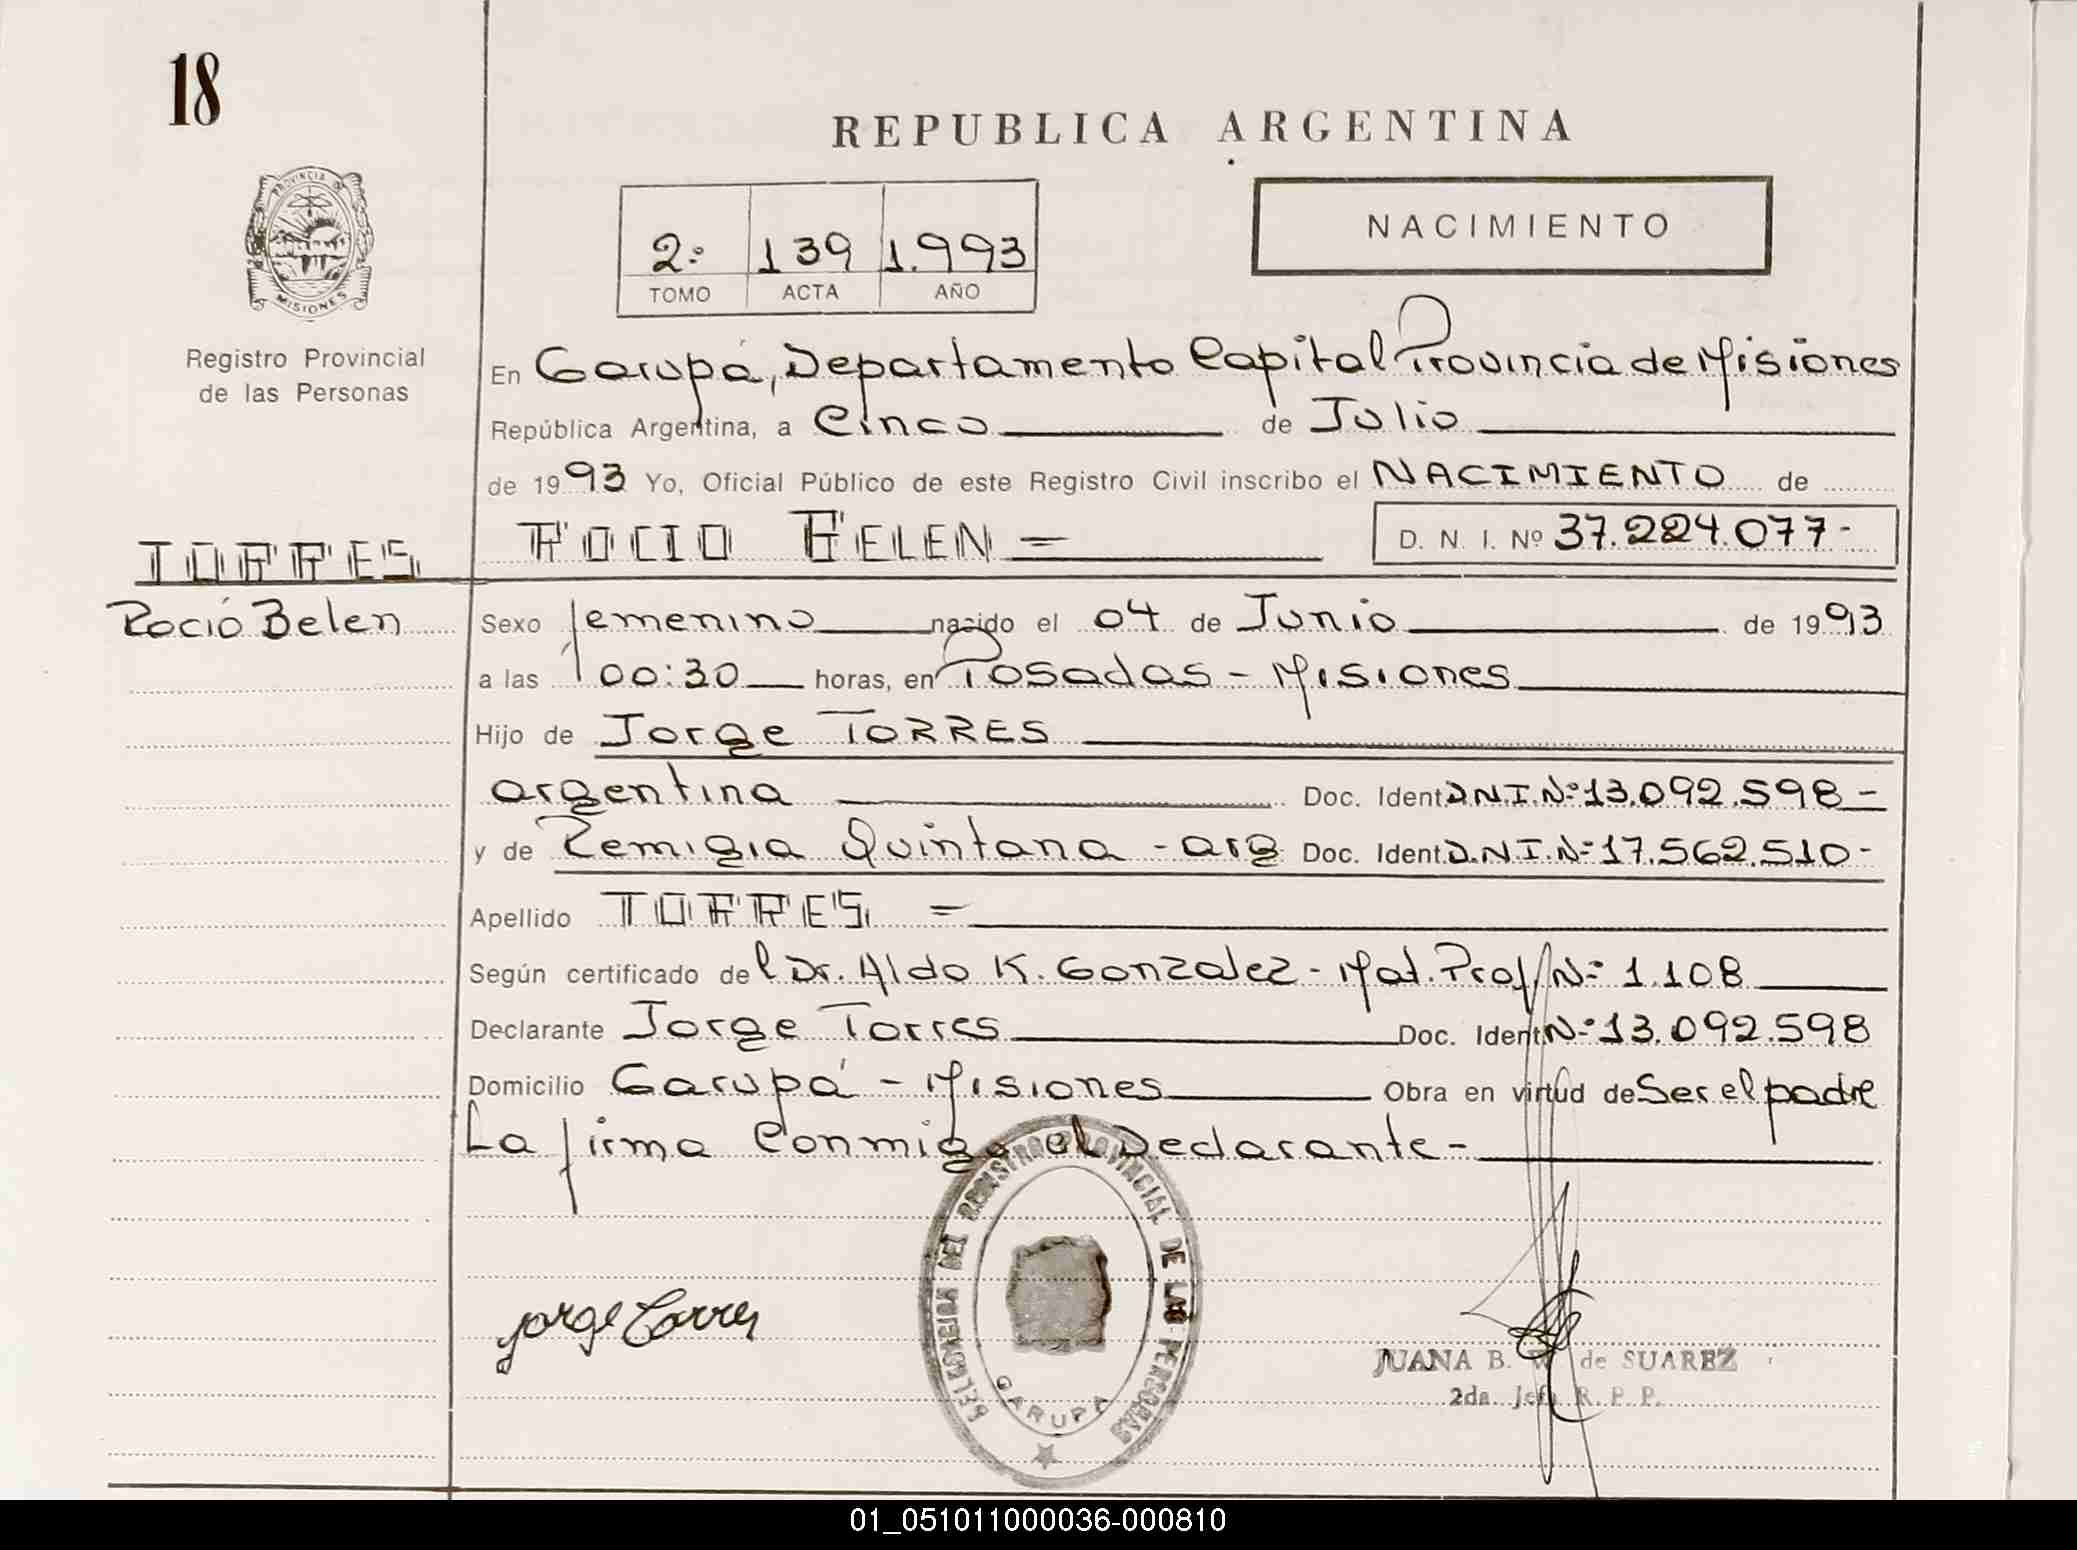 18
REPUBLICA ARGENTINA
PROVINCIA DE
MISIONES
Registro Provincial
de las Personas
2º 139 1.993
TOMO ACTA AÑO
NACIMIENTO
En Garupá, Departamento Capital Provincia de Misiones
República Argentina, a Cinco de Julio
de 1993 Yo, Oficial Público de este Registro Civil inscribo el NACIMIENTO de
TORRES
Rocío Belen
ROCIO BELEN =
D. N. I. Nº 37.224.077-
Sexo femenino nacido el 04 de Junio de 1993
a las 00:30 horas, en Posadas - Misiones
Hijo de Jorge TORRES
argentina Doc. Ident. D.N.I.Nº 13.092.598 -
y de Remigia Quintana - arg Doc. Ident. D.N.I.Nº 17.562.510-
Apellido TORRES =
Según certificado del Dr. Aldo K. Gonzalez - Mat. Prof Nº 1.108
Declarante Jorge Torres Doc. Ident Nº 13.092.598
Domicilio Garupá - Misiones Obra en virtud de Ser el padre
La firma Conmigo el Declarante -
DELEGACION DEL REGISTRO PROVINCIAL DE LAS PERSONAS
GARUPA
Jorge Torres
JUANA B. W. de SUAREZ
2da. Jefa R. P. P.
01_051011000036-000810